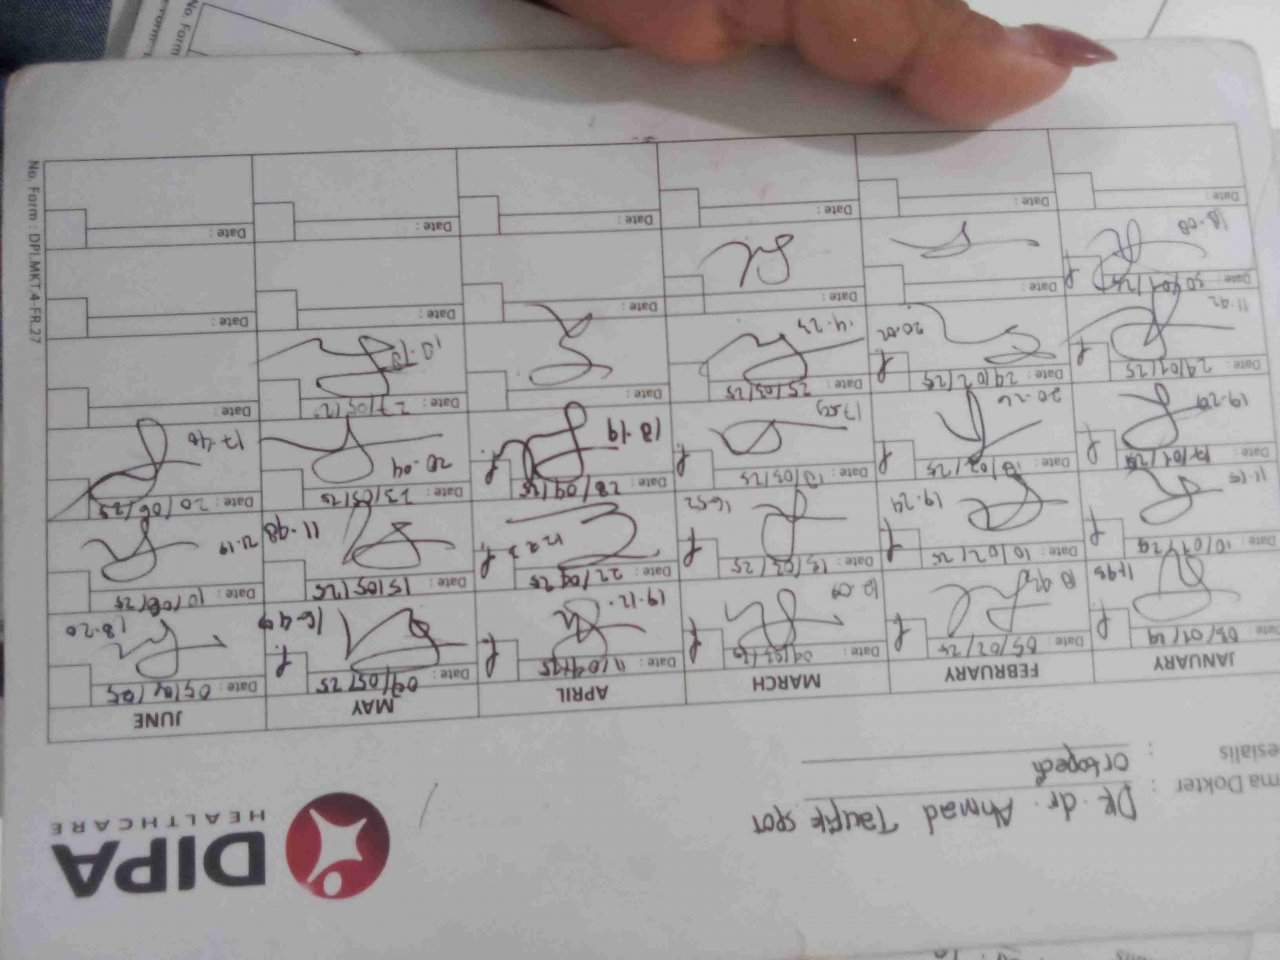 DIPA
HEALTHCARE
ma Dokter : DR. dr. Ahmad Taufik SPOT
esialis : Ortopedi
JANUARY FEBRUARY MARCH APRIL MAY JUNE
Date : 03/01/24 Date : 05/02/25 Date : Date : 11/04/25 Date : 09/05/25 Date :
11.45 18.42 12.09 19.12. 16.49 18.20
Date : 10/01/24 Date : 10/02/25 Date : 15/03/25 Date : 22/04/25 Date : 15/05/25 Date : 10/06/25
19.24 16.52 11.48 21.19
Date : 17/01/25 Date : 18/02/25 Date : 18/03/25 Date : 28/04/25 Date : 23/05/25 Date : 20/06/25
19.29 20.26 17.59 18.19 20.04 17.40
Date : 24/01/25 Date : 24/02/25 Date : 25/03/25 Date : Date : 27/05/2 Date :
11.42 20.02 14.23
Date : 30/01/25 Date : Date : Date : Date : Date :
18.08
Date : Date : Date : Date : Date : Date :
No. Form : DPI.MKT.4-FR.27
No. Form